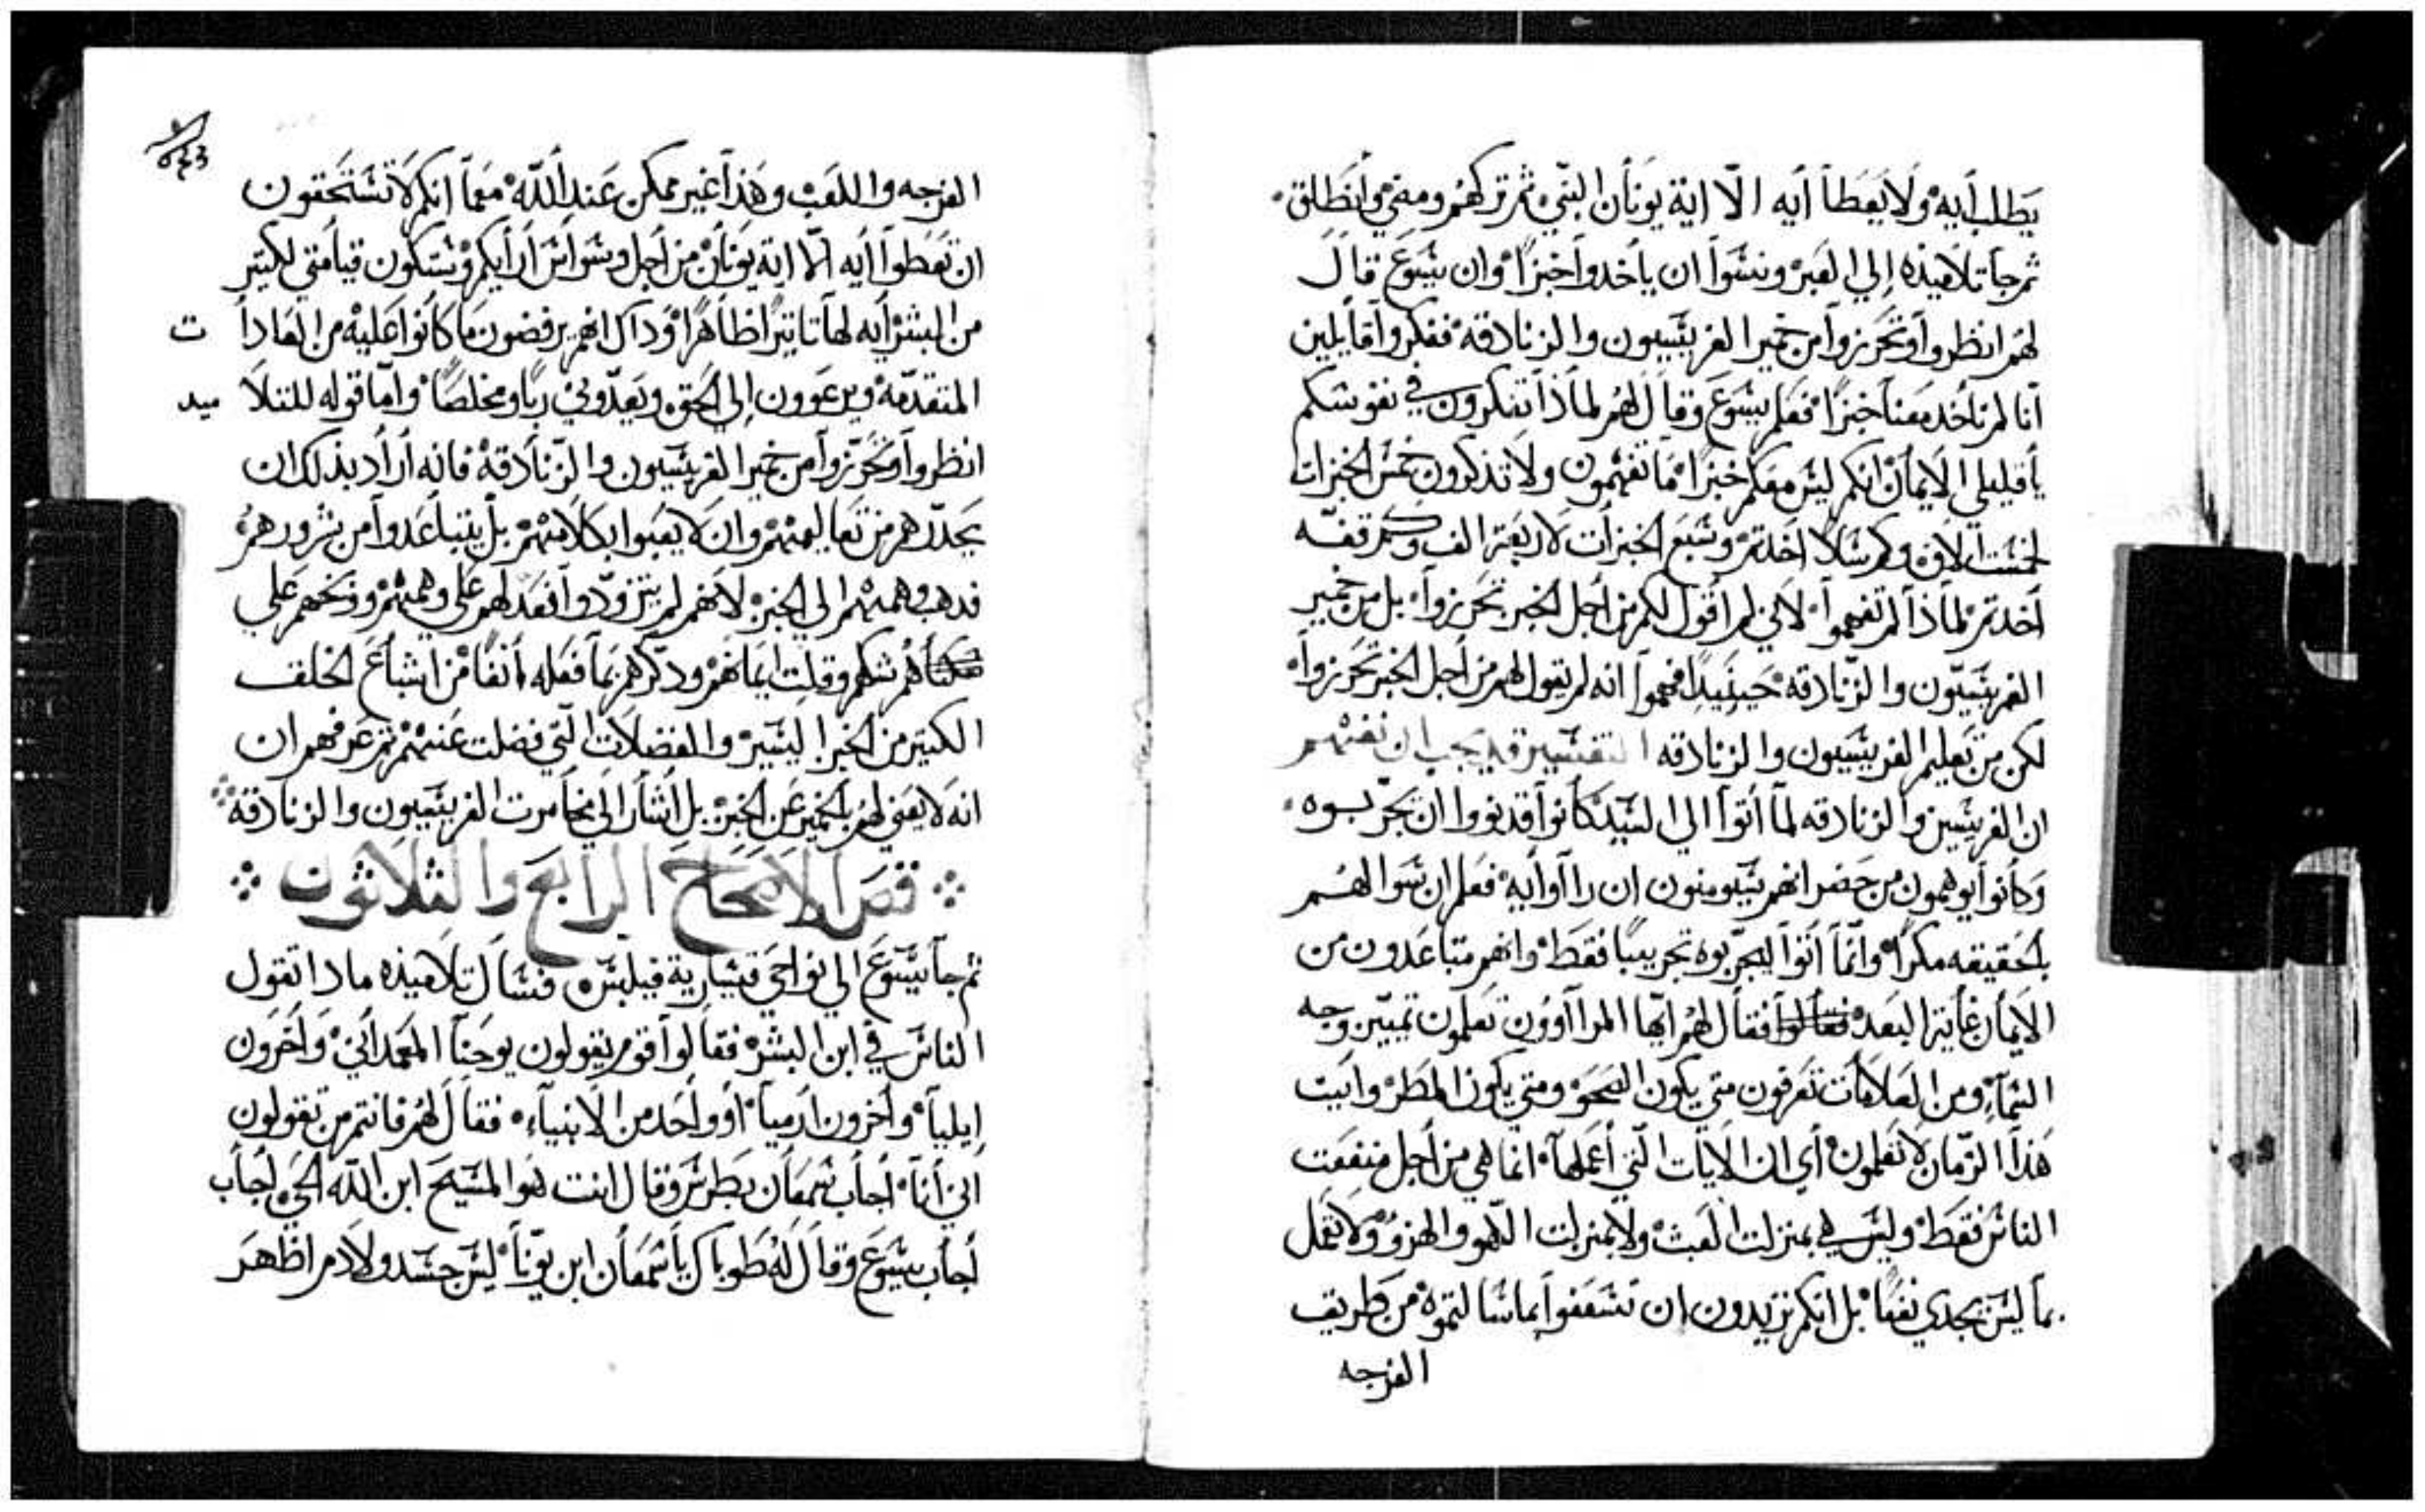 يطلب أيه ولا يعطا أيه الّا اية يونان النبي ثم تركهم ومضي وانطلق
ثم جا تلاميذه إلي العبر ونسوا ان ياخدوا خبزاً وان يسوع قال
لهم انظروا وتحرزوا من خمير الفريسيون والزنادقه ففكروا قايلين
أنا لم ناخد معنا خبزاً فعلم يسوع وقال لهم لماذا تفكرون في نفوسكم
يا قليلي الايمان انكم ليس معكم خبزاً ما تفهمون ولا تذكرون خمس الخبزات
لخمست الاف وكم سلا اخدتم وسبع الخبزات لاربعة الف وكم قفه
أخدتم لماذا لم تفهموا لاني لم اقول لكم من اجل الخبز تحرزوا بل من خمير
الفريسيّون والزنادقه حينيداً فهموا انه لم يقول لهم من أجل الخبز تحرزوا
لكن من تعليم الفريسيون والزنادقه التفسير قد يجب ان نفهم
ان الفريسين والزنادقه لما أتوا الي السيد كانوا قد نووا ان يجرّبوه
وكانوا يوهمون من حضر انهم سيومنون ان راوا أيه فعلم ان سوالهم
بالحقيقه مكراً وانّما أتوا ليجرّبوه تجريبًا فقط وانهم متباعدون من
الايمان غاية البعد فقالوا فقال لهم ايّها المراآوون تعلمون تميّين وجه
السّماء ومن العلامات تعرفون متي يكون الصحو ومتي يكون المطر وايت
هذا الزمان لا تعلمون أي ان الايات الّتي أعملها انما هي من أجل منفعت
الناس فقط وليس هي بمنزلت العبث ولا بمنزلت اللّهو والهزؤ ولا تعمل
بما ليس يجدي نفعًا بل انكم تريدون ان تسعفوا بما سالتموة من طريق
الفرجه
الفرجه واللعب وهذا غير ممكن عند اللّه معما انكم لا تستحقون
ان تعطوا أيه الّا اية يونان من اجل وسواس ارايكم وستكون قيامتي لكتير
من البشر أيه لها تاتيراً ظاهراً وداك انهم يرفضون ما كانوا عليه من العادات
المتقدّمة ويرعوون إلي الحق ويعدّوني ربًا ومخلصًا وامّا قوله للتلاميد
انظروا وتحرّزوا من خمير الفريسيون والزنادقة فانه أراد بذلك ان
يحدّرهم من تعاليمهم وان لا يعبوا بكلامهم بل يتباعدوا من شرورهم
فدهب وهمهم الي الخبز لانهم لم يتزوّدوا فعدلهم علي وهمهم ووبخهم علي
شكهم وقلت ايمانهم ودكرهم بما فعله أنفًا من اشباع الخلق
الكتير من الخبز اليسير والفضلات الّتي فضلت عنهم ثم عرفهم ان
انه لا يعني لهم بالخمير عن الخبز بل اشار الي مخامرت الفريسيون والزنادقة
فصَ الاصحاح الرابع والثلاثون
ثم جا يسوع الي نواحي قيسارية فيلبس فسال تلاميذه مادا تقول
الناس في ابن البشر فقالوا قوم يقولون يوحنا المعمداني وأخرون
إيليا وأخرون ارميا أو واحد من الانبياء فقال لهم فانتم من تقولون
اني أنا أجاب شمعان بطرس وقال انت هو المسيح ابن اللّه الحي اجاب
أجاب يسوع وقال له طوباك يا شمعان ابن يوّنا ليس جسد ولا دم اظهر